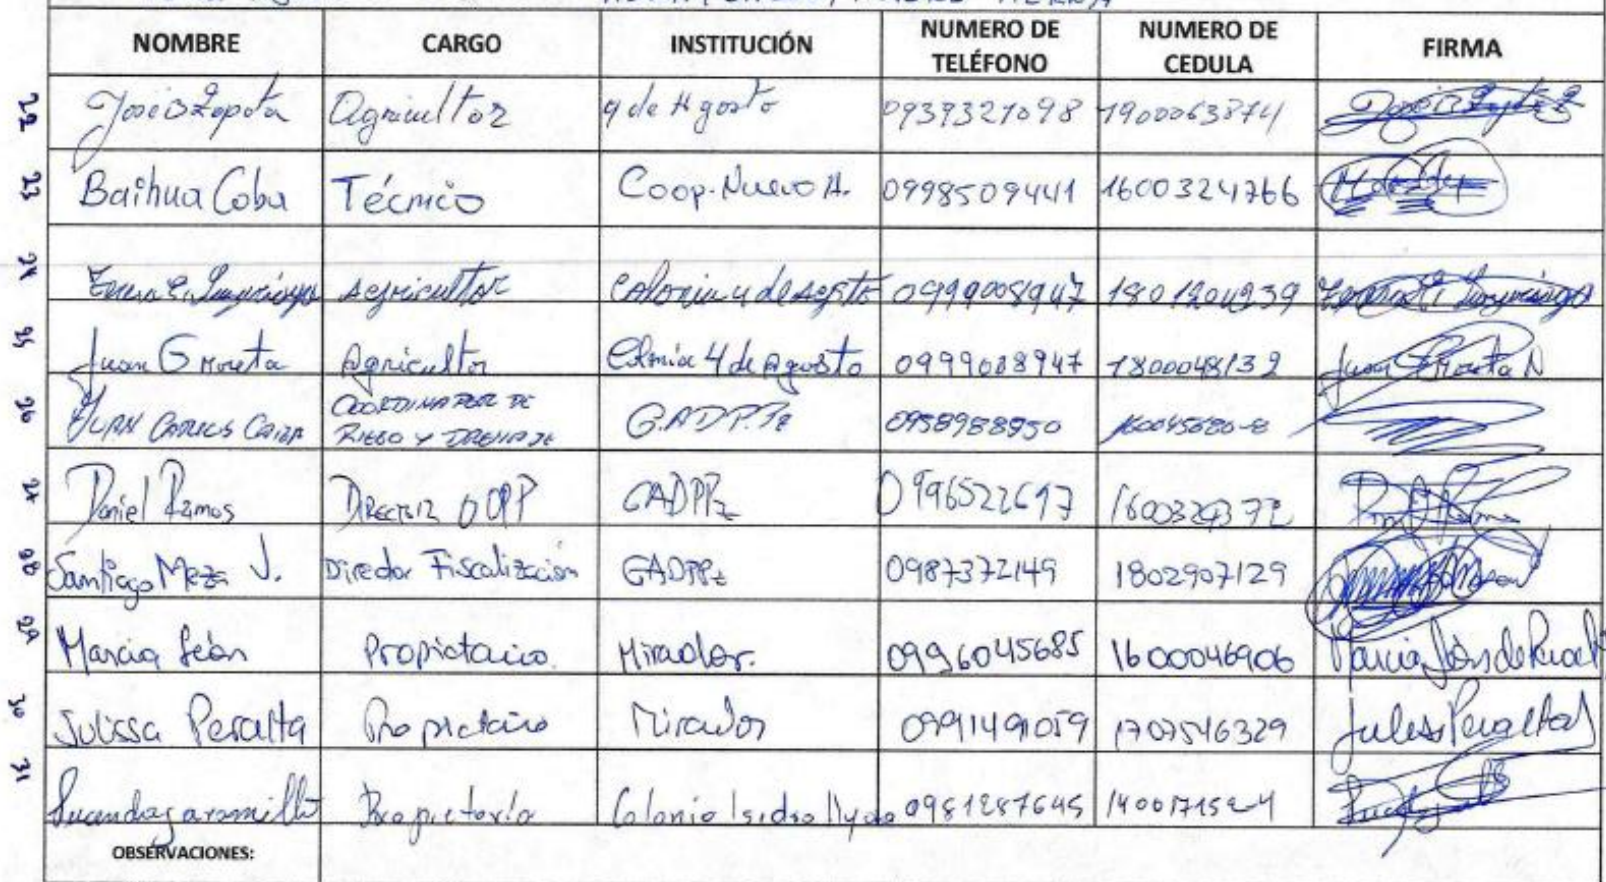 NOMBRE CARGO INSTITUCIÓN NUMERO DE TELÉFONO NUMERO DE CEDULA FIRMA
22 José B Zapata Agricultor 9 de Agosto 0939327098 1900063874
23 Baihua Coba Técnico Coop. Nuevo A. 0998509441 1600324766
24 Agricultor Colonia 4 de Agosto 0999008947 1801204239
25 Juan G Moreta Agricultor Colonia 4 de Agosto 0999008947 1800048132 Juan G Moreta N
26 JUAN CARLOS COORDINADOR DE RIEGO Y DRENAJE G.A.D.P.Pz 0958988950 160045680-8
27 Daniel Ramos DIRECTOR OOPP GADPPz 0996522617 1600329372
28 Santiago Meza J. Director Fiscalización GADPPz 0987372149 1802907129
29 Marcia León Propietario. Mirador. 0996045685 1600046906
30 Julissa Peralta Propietario Mirador 0991491059 1707546329
31 Propietaria Colonia Isidro Ayora 0981287645 140017152-1
OBSERVACIONES: